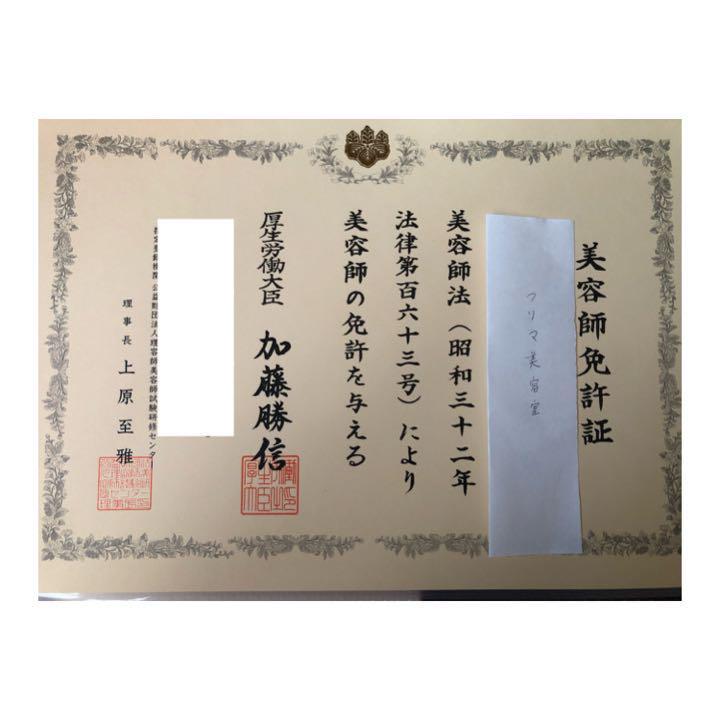 美容師免許証
フリマ美容室
美容師法（昭和三十二年
法律第百六十三号）により
美容師の免許を与える
厚生労働大臣 加藤勝信
公益財団法人理容師美容師試験研修センター
理事長 上原至雅